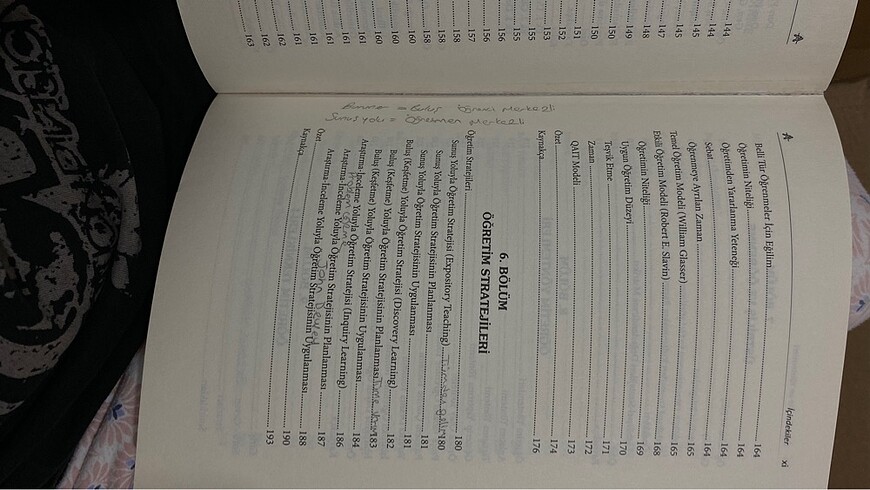 İçindekiler xi
Belli Tür Öğrenmeler İçin Eğilim 164
Öğretimin Niteliği 164
Öğretimden Yararlanma Yeteneği 164
Sebat 164
Öğrenmeye Ayrılan Zaman 165
Temel Öğretim Modeli (William Glasser) 165
Etkili Öğretim Modeli (Robert E. Slavin) 168
Öğretimin Niteliği 169
Uygun Öğretim Düzeyi 170
Teşvik Etme 171
Zaman 172
QAIT Modeli 173
Özet 174
Kaynakça 176
6. BÖLÜM
ÖĞRETİM STRATEJİLERİ
Öğretim Stratejileri 180
Sunuş Yoluyla Öğretim Stratejisi (Expository Teaching) Tümden gelim 180
Sunuş Yoluyla Öğretim Stratejisinin Planlanması 181
Sunuş Yoluyla Öğretim Stratejisinin Uygulanması 181
Buluş (Keşfetme) Yoluyla Öğretim Stratejisi (Discovery Learning) 182
Buluş (Keşfetme) Yoluyla Öğretim Stratejisinin Planlanması 183
Buluş (Keşfetme) Yoluyla Öğretim Stratejisinin Uygulanması 184
Araştırma-İnceleme Yoluyla Öğretim Stratejisi (Inquiry Learning) 186
Araştırma-İnceleme Yoluyla Öğretim Stratejisinin Planlanması 187
Araştırma-İnceleme Yoluyla Öğretim Stratejisinin Uygulanması 188
Özet 190
Kaynakça 193
= Buluş Öğrenci Merkezli
Sunuş yolu = Öğretmen Merkezli
John Dewey
144
144
145
145
147
148
149
150
150
151
152
153
155
155
156
156
157
158
158
158
160
160
160
161
161
161
161
162
162
163